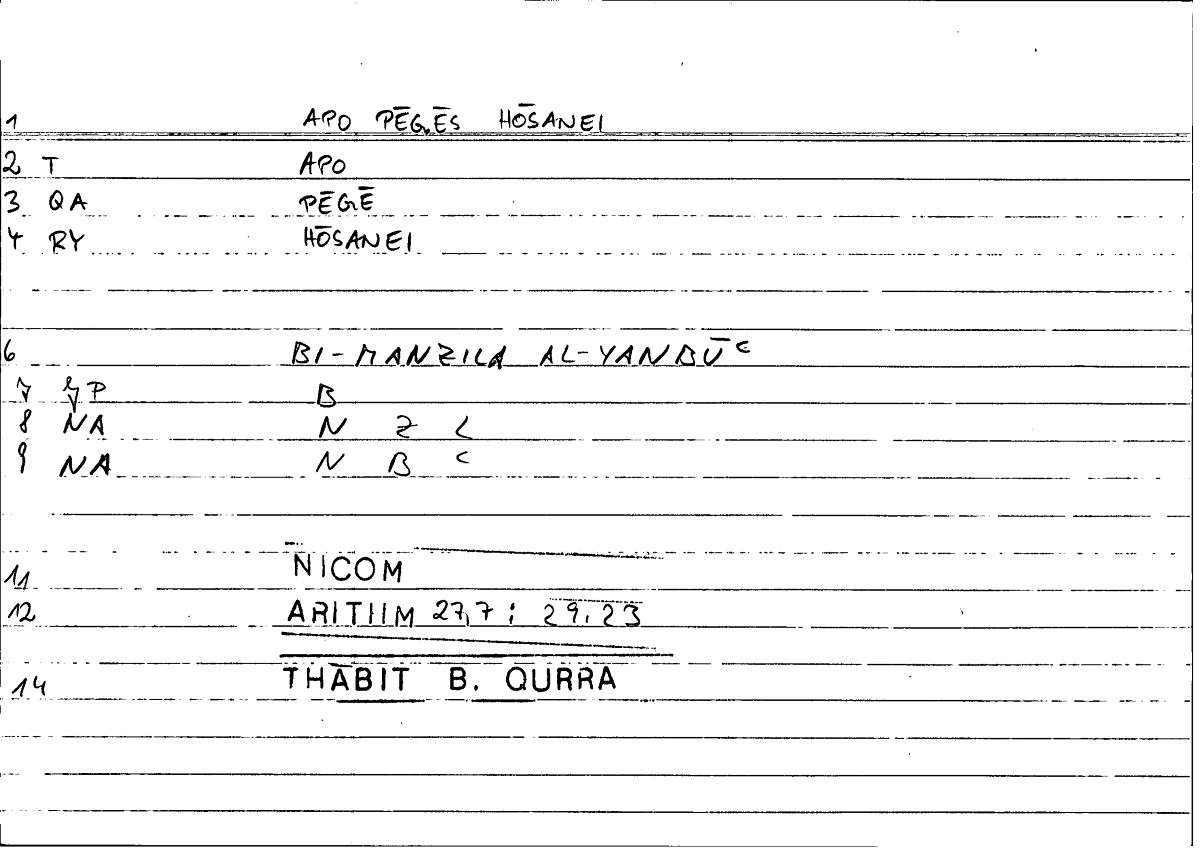 1 APO PĒGĒS HŌSANEI
2 T APO
3 QA PĒGĒ
4 RY HŌSANEI
6 BI-MANZILA AL-YANBŪʿ
7 P B
8 NA N Z L
9 NA N B ʿ
11 NICOM
12 ARITIIM 27,7 : 29,23
14 THĀBIT B. QURRA